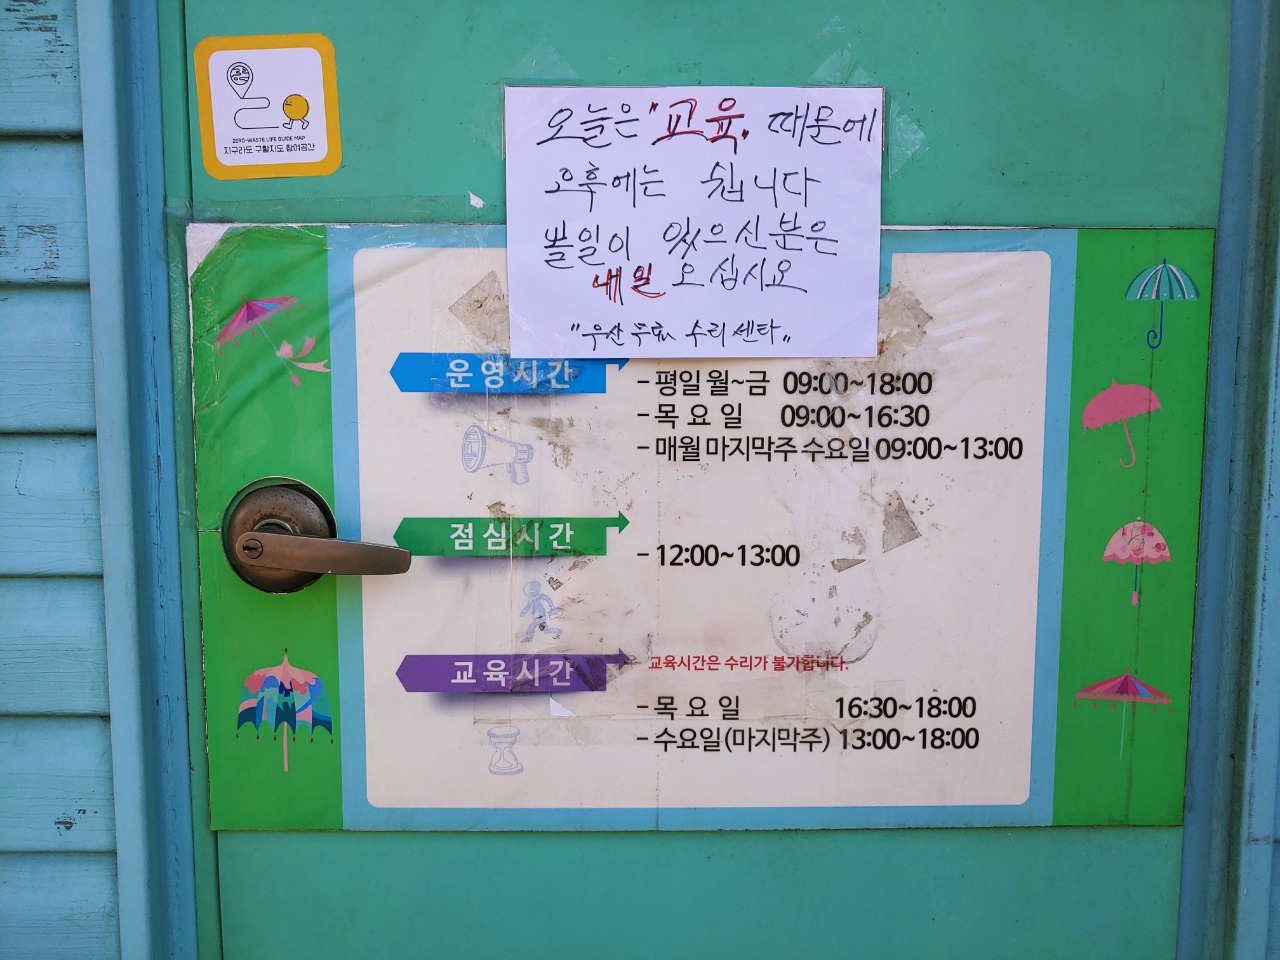 ZERO-WASTE LIFE GUIDE MAP
지구라도 구할지도 참여공간
오늘은 "교육" 때문에
오후에는 쉽니다
볼일이 있으신분은
내일 오십시요
"우산 무료 수리 센타"
운영시간
- 평일 월~금 09:00~18:00
- 목 요 일 09:00~16:30
- 매월 마지막주 수요일 09:00~13:00
점심시간
- 12:00~13:00
교육시간
교육시간은 수리가 불가합니다.
- 목 요 일 16:30~18:00
- 수요일(마지막주) 13:00~18:00